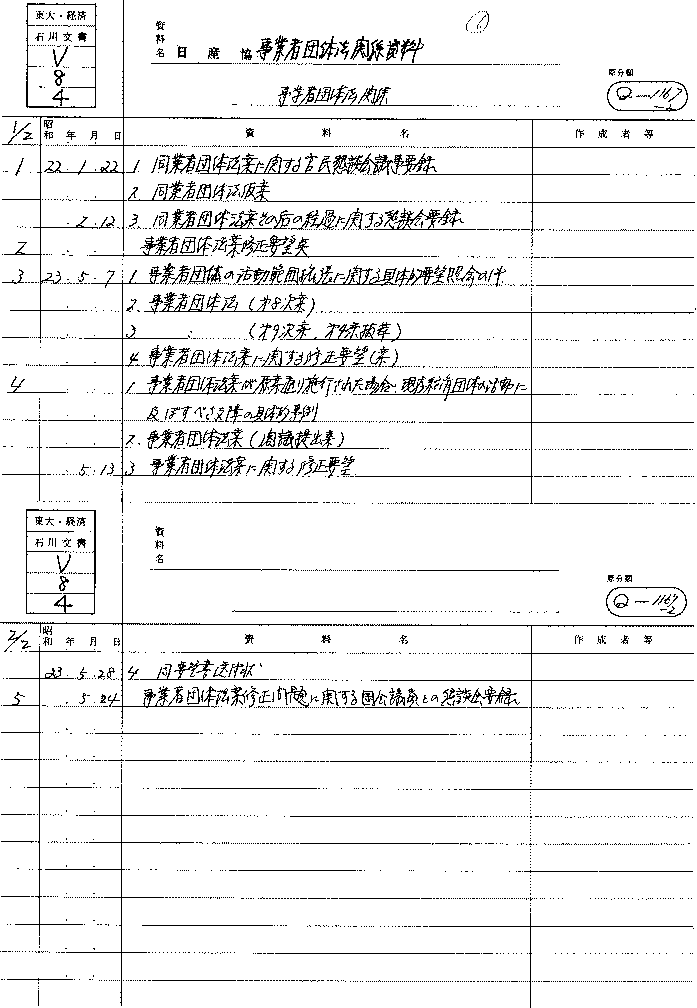 (1)
東大・経済
石川文書
V
8
4
資料名 日産協 事業者団体法関係資料
事業者団体法関係
原分類
Q-1167-2
1/2 昭和 年 月 日 資料名 作成者等
1 22.1.22 1. 同業者団体法案に関する官民懇談会議事要録
2. 同業者団体法仮案
2.12 3. 同業者団体法案その后の経過に関する懇談会要録
2 事業者団体法案修正要望案
3 23.5.7 1. 事業者団体の活動範囲拡張に関する具体的要望照会の件
2. 事業者団体法(才8次案)
3 〃 (才9次案、才4条抜萃)
4. 事業者団体法案に関する修正要望(案)
4 1. 事業者団体法案が原案通り施行された場合、現存経済団体の活動に
及ぼすべき支障の具体的事例
2. 事業者団体法案(国議提出案)
5.13 3. 事業者団体法案に関する修正要望
東大・経済
石川文書
V
8
4
資料名
原分類
Q-1167-2
2/2 昭和 年 月 日 資料名 作成者等
23.5.28 4. 同要望書送付状
5 5.24 事業者団体法案修正問題に関する国会議員との懇談会要録